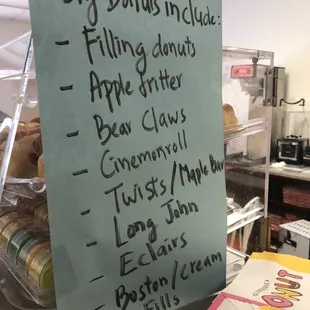 Donuts include:
- Filling donuts
- Apple fritter
- Bear Claws
- Cinemonroll
- Twists/Maple Bar
- Long John
- Eclairs
- Boston/cream
Fills
DONUT